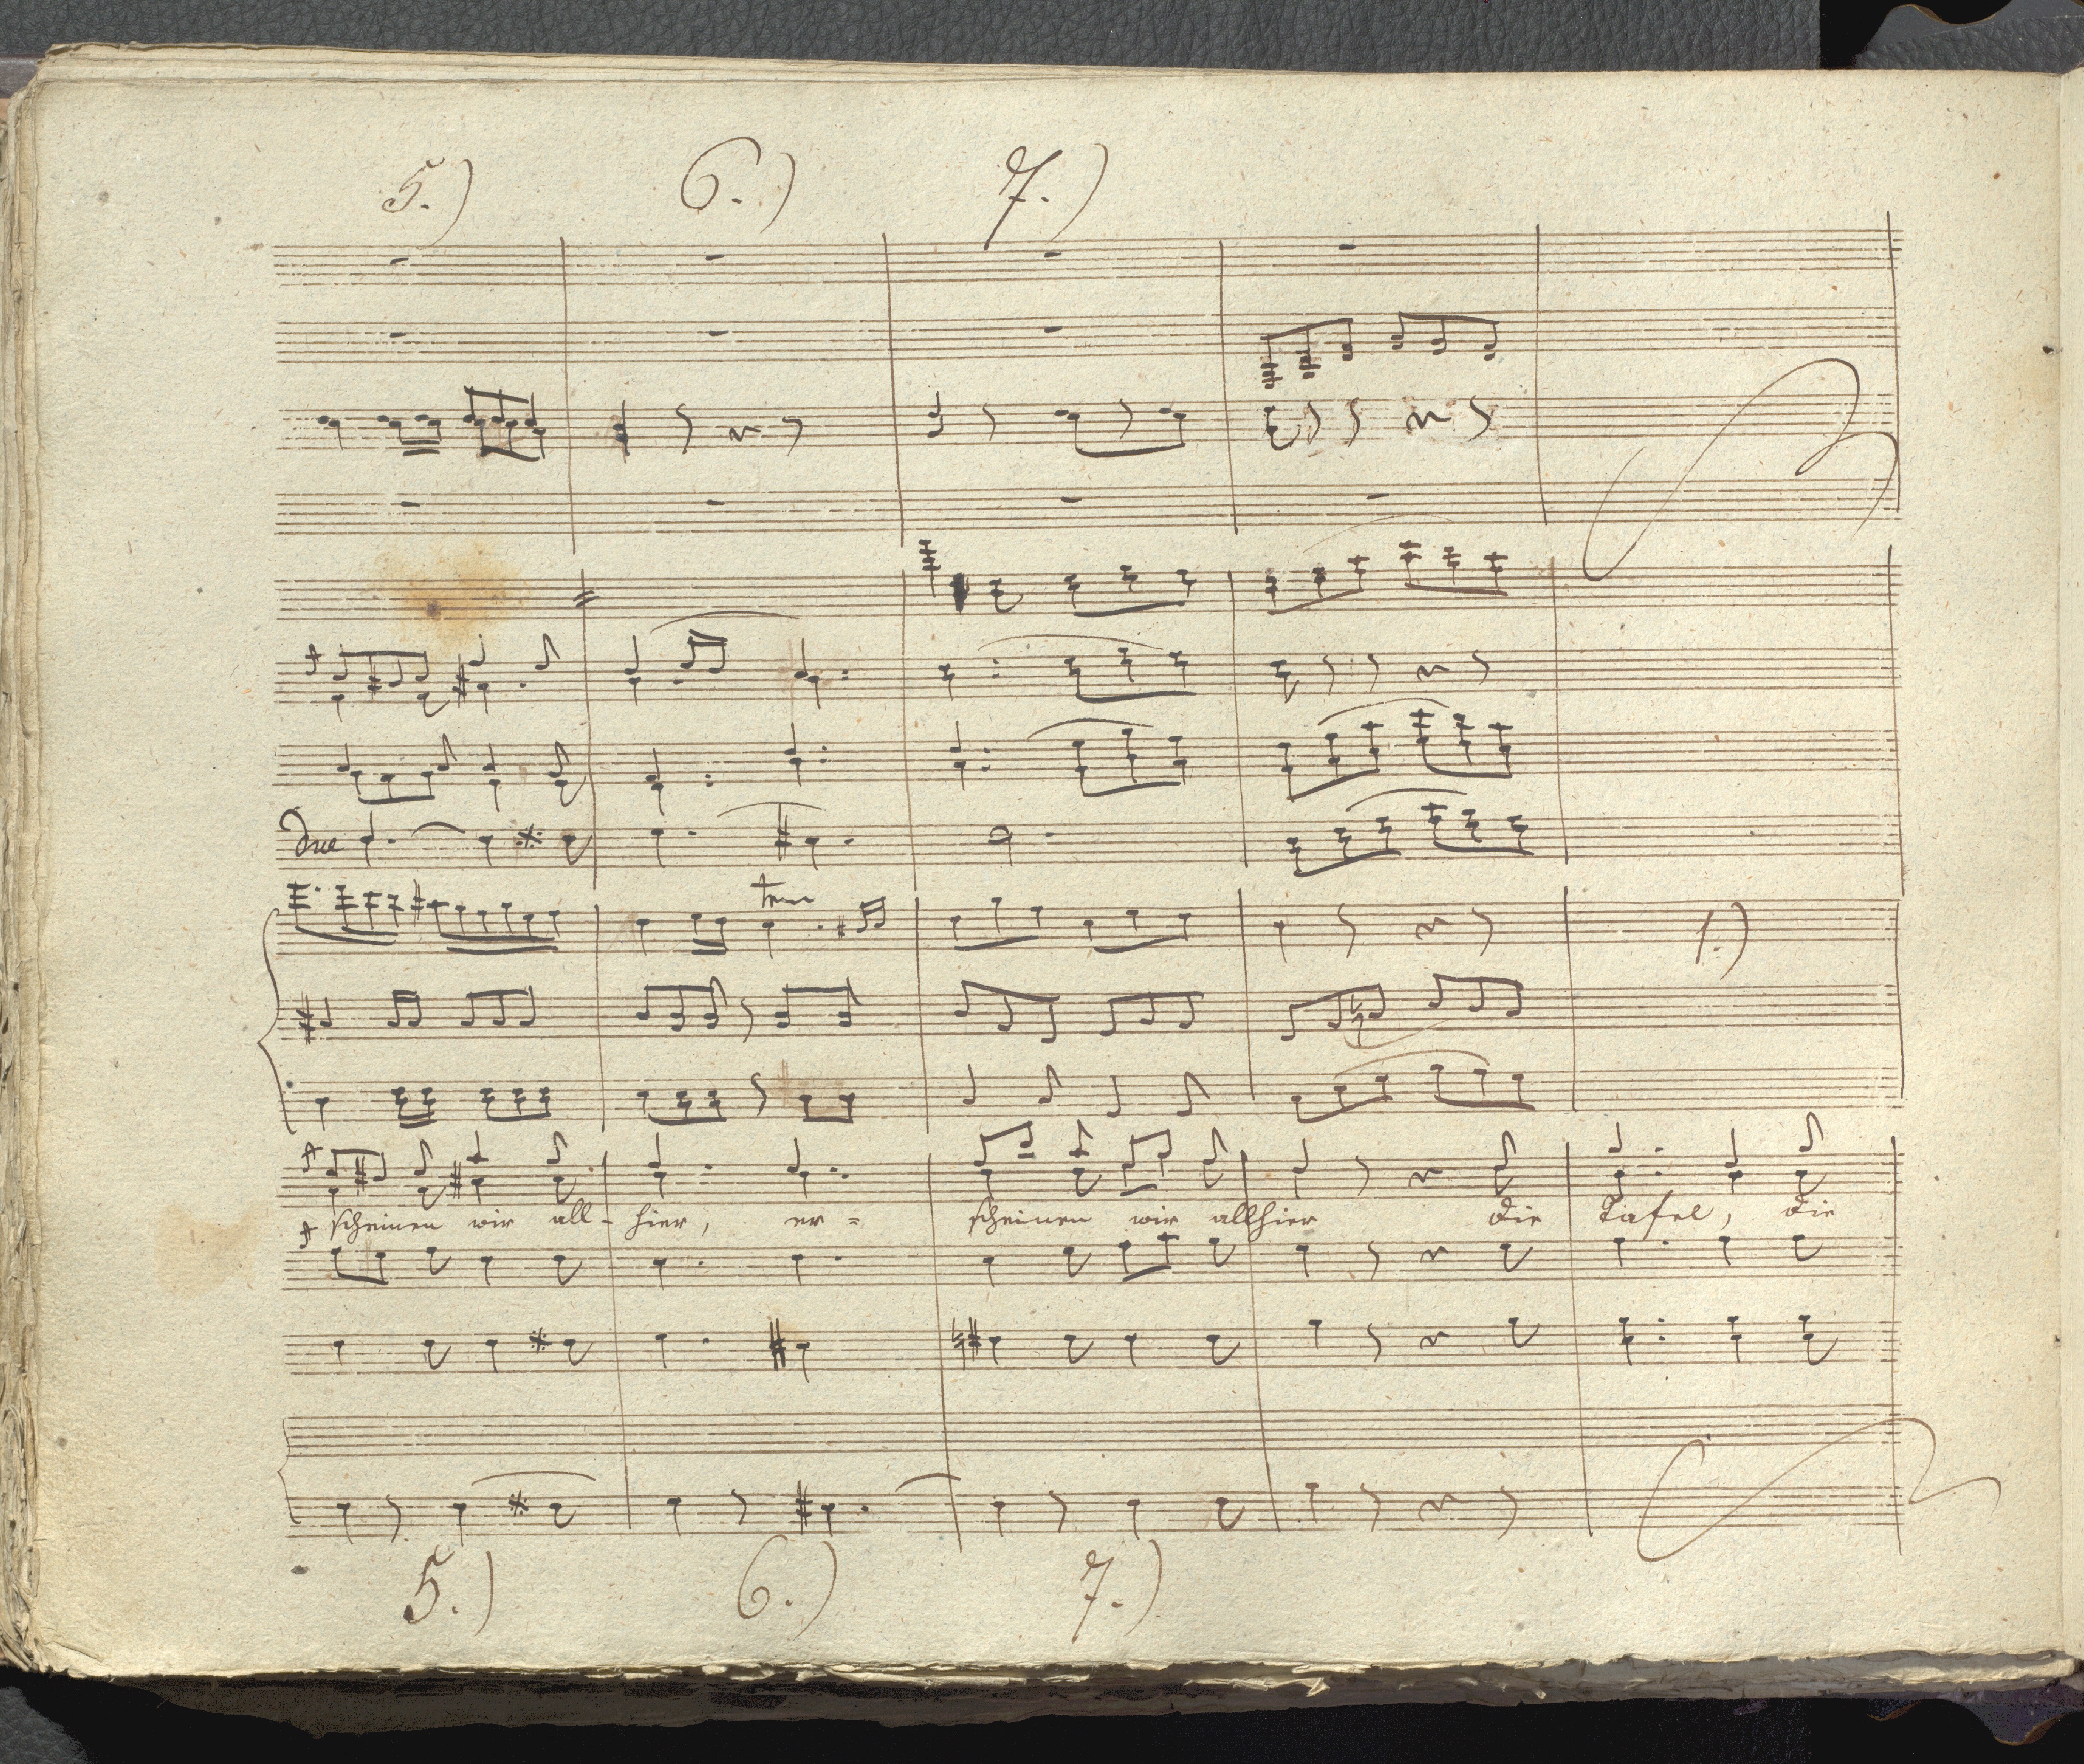 5.) 6.) 7.)
due
1.)
scheinen wir all- hier, er= scheinen wir allhier die Tafel, die
5.) 6.) 7.)